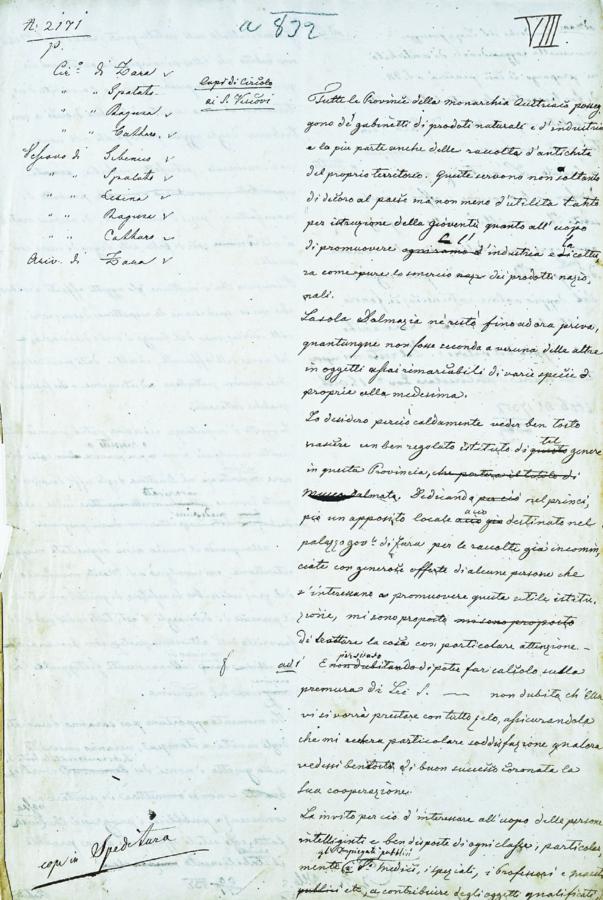 N. 2171
p.
a 832
VIII
Circ.º di Zara
" " Spalato.
" " Ragusa
" " Cattaro.
Vescovo di Sebenico
" " Spalato
" " Lesina
" " Ragusa
" " Cattaro
Arciv. di Zara
Capi di Circolo
ai S. Vescovi
Tutte le Provincie della monarchia Austriaca posseg
gono de' gabinetti di prodoti naturali e d'industria
e la più parte anche delle raccolte d'antichità
del proprio territorio. Queste servono non soltanto
di decoro al paese ma non meno d'utilità tanto
per istruzione della Gioventù quanto all'uopo
di promuovere ogni ramo d'industria e di coltu
ra come pure lo smercio dei prodotti nazio
nali.
La sola Dalmazia nè restò fino ad ora priva,
quantunque non fosse seconda a veruna delle altre
in oggetti assai rimarcabili di varie specie
proprie alla medesima.
Io desidero perciò caldamente veder ben tosto
nascere un ben regolato istituto di questo tal genere
in questa Provincia, che porterà il titolo di
Museo Dalmata. Dedicando perciò nel princi
pio un apposito locale destinato nel
palazzo gov.º di Zara per le raccolte già incomin
ciate con generose offerte di alcune persone che
s'interessano a promuovere questa utile istitu
zione, mi sono proposto mi sono proposto
di trattare la cosa con particolare attenzione. –
ad 1 E non dubitando persuaso di poter far calcolo sulla
premura di Lei S. — non dubito ch'Ella
vi si vorrà prestare con tutto zelo, assicurandola
che mi recherà particolare soddisfazione qualora
vedessi bentosto di buon successo coronata la
sua cooperazione.
La invito perciò d'interessare all'uopo delle persone
intelligenti e ben disposte di ogni classe, particolar
gli Impiegati pubblici
mente i S.i medici, i speziali, i Professori e maestri
pubblici etc, a contribuire degli oggetti qualificati,
copi in Speditura